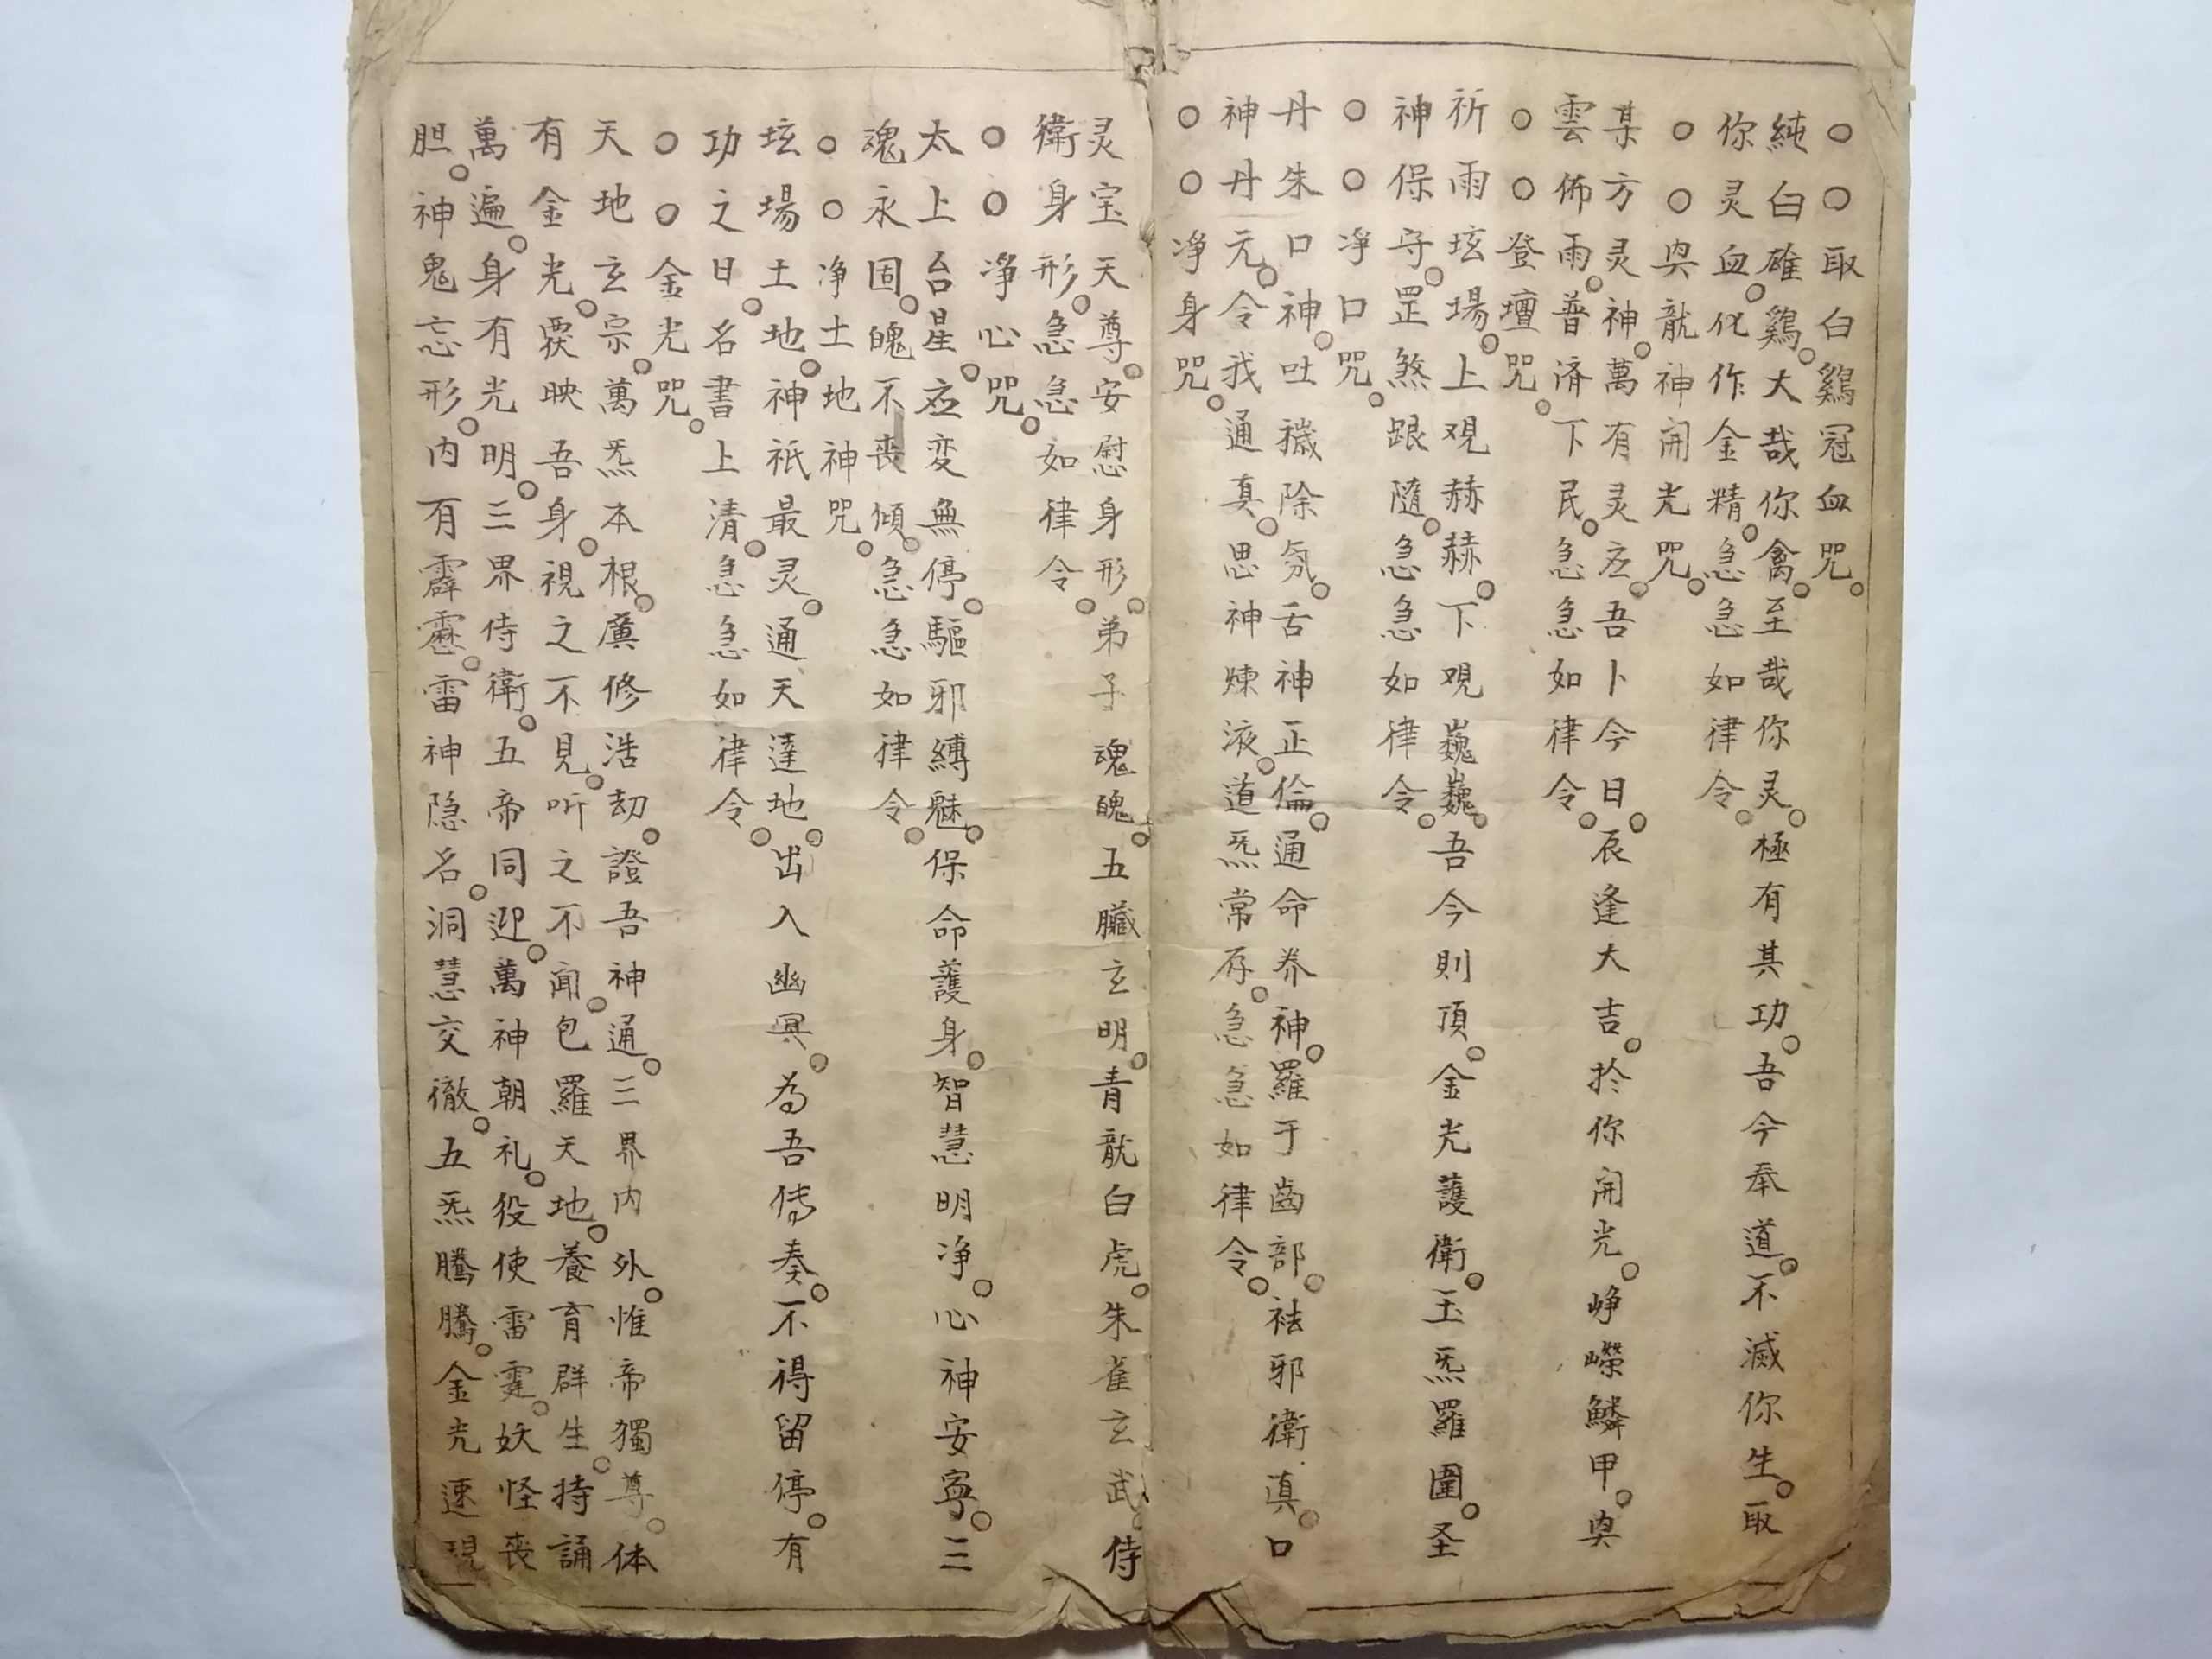 ○○取白鷄冠血咒。
純白碓鷄。大哉你禽。至哉你灵。極有其功。吾今奉道。不滅你生。取
你灵血。化作金精。急急如律令。
○○與龍神開光咒。
某方灵神。萬有灵应。吾卜今日。辰逢大吉。於你開光。崢嶸鱗甲。與
雲佈雨。普济下民。急急如律令。
○○登壇咒。
祈雨坛場。上观赫赫。下观巍巍。吾今則頂。金光護衛。玉炁羅圍。圣
神保守。罡煞跟隨。急急如律令。
○○净口咒。
丹朱口神。吐穢除氛。舌神正倫。通命养神。羅于齒部。祛邪衛真。口
神丹元。令我通真。思神煉液。道炁常存。急急如律令。
○○净身咒。
灵宝天尊。安慰身形。弟子魂魄。五臟玄明。青龍白虎。朱雀玄武。侍
衛身形。急急如律令。
○○净心咒。
太上台星。应变無停。驅邪縛魅。保命護身。智慧明净。心神安寧。三
魂永固。魄不丧傾。急急如律令。
○○净土地神咒。
坛場土地。神祇最灵。通天達地。出入幽冥。為吾傳奏。不得留停。有
功之日。名書上清。急急如律令。
○○金光咒。
天地玄宗。萬炁本根。廣修浩劫。證吾神通。三界内外。惟帝獨尊。体
有金光。覆映吾身。視之不見。听之不闻。包羅天地。養育群生。持誦
萬遍。身有光明。三界侍衛。五帝同迎。萬神朝礼。役使雷霆。妖怪丧
胆。神鬼忘形。内有霹靂。雷神隐名。洞慧交徹。五炁騰騰。金光速現